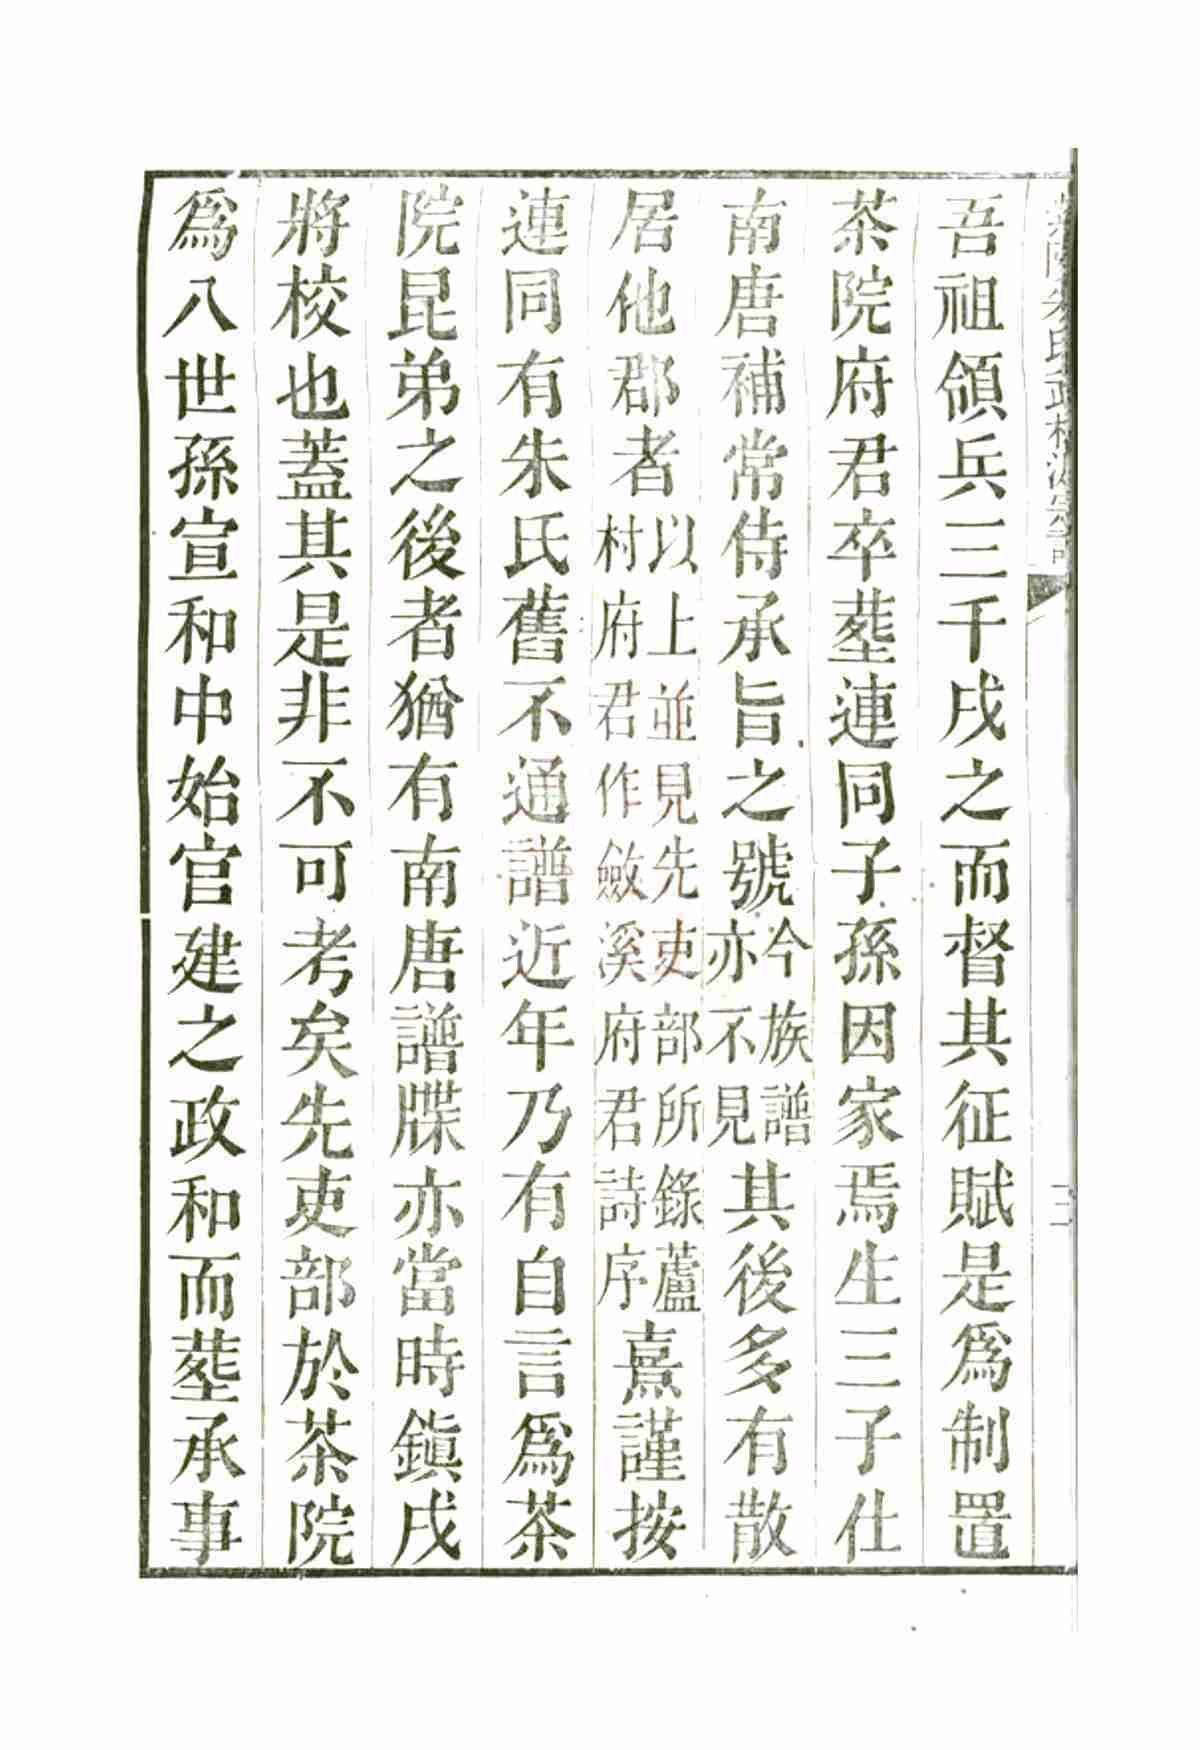 紫陽朱氏武林派宗譜
三
吾祖領兵三千戍之而督其征賦是爲制置
茶院府君卒塟連同子孫因家焉生三子仕
南唐補常侍承旨之號今族譜亦不見其後多有散
居他郡者以上並見先吏部所錄蘆村府君作斂溪府君詩序熹謹按
連同有朱氏舊不通譜近年乃有自言爲茶
院昆弟之後者猶有南唐譜牒亦當時鎭戍
將校也蓋其是非不可考矣先吏部於茶院
爲八世孫宣和中始官建之政和而塟承事